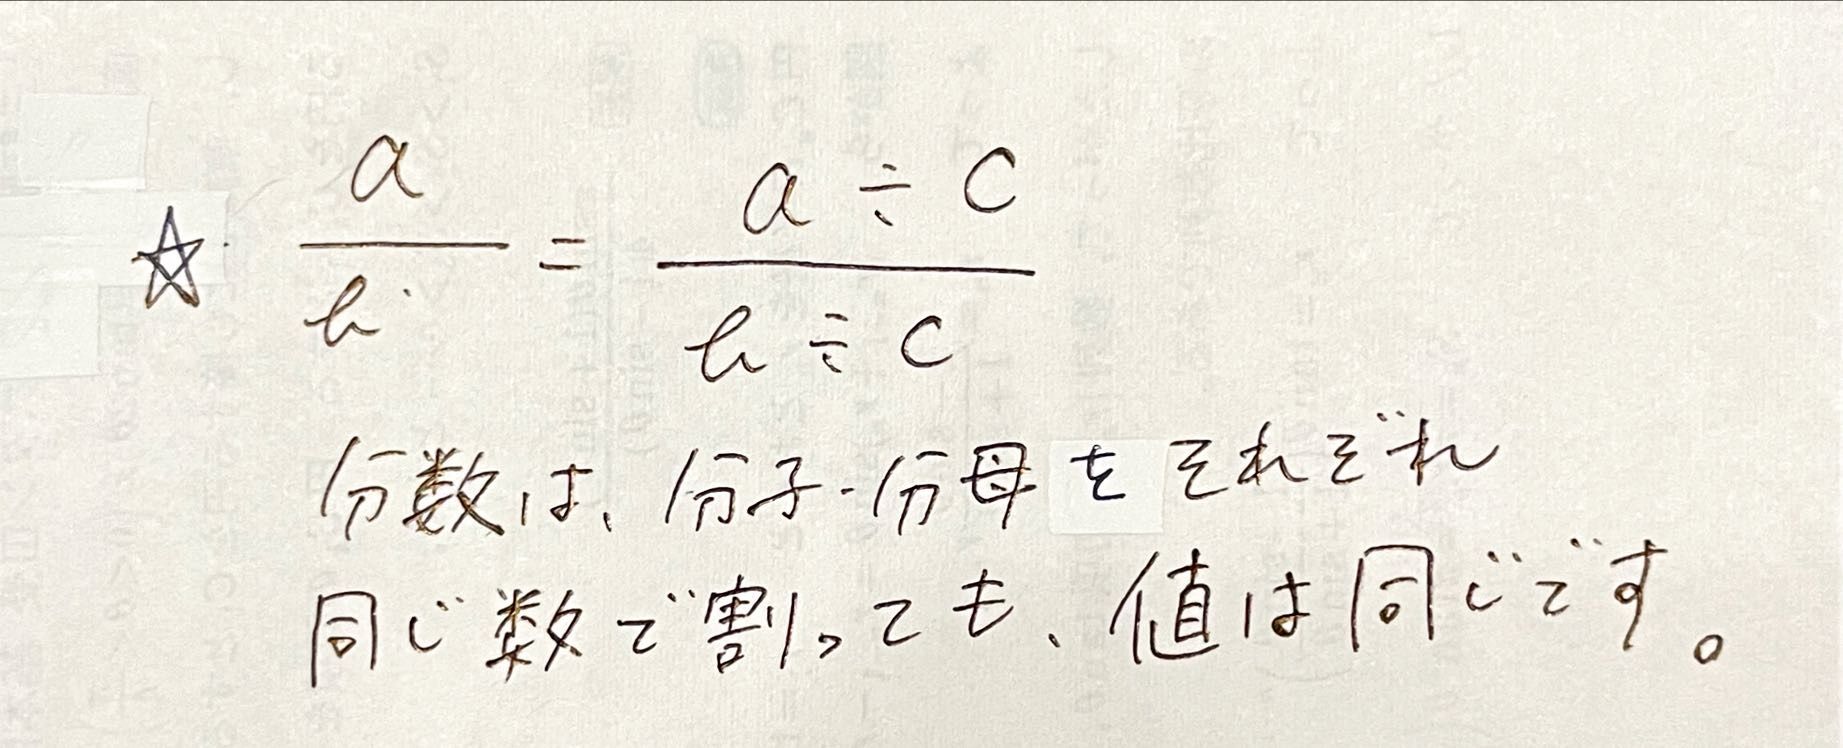 ☆ a/b = a÷c/b÷c
分数は、分子・分母をそれぞれ
同じ数で割っても、値は同じです。